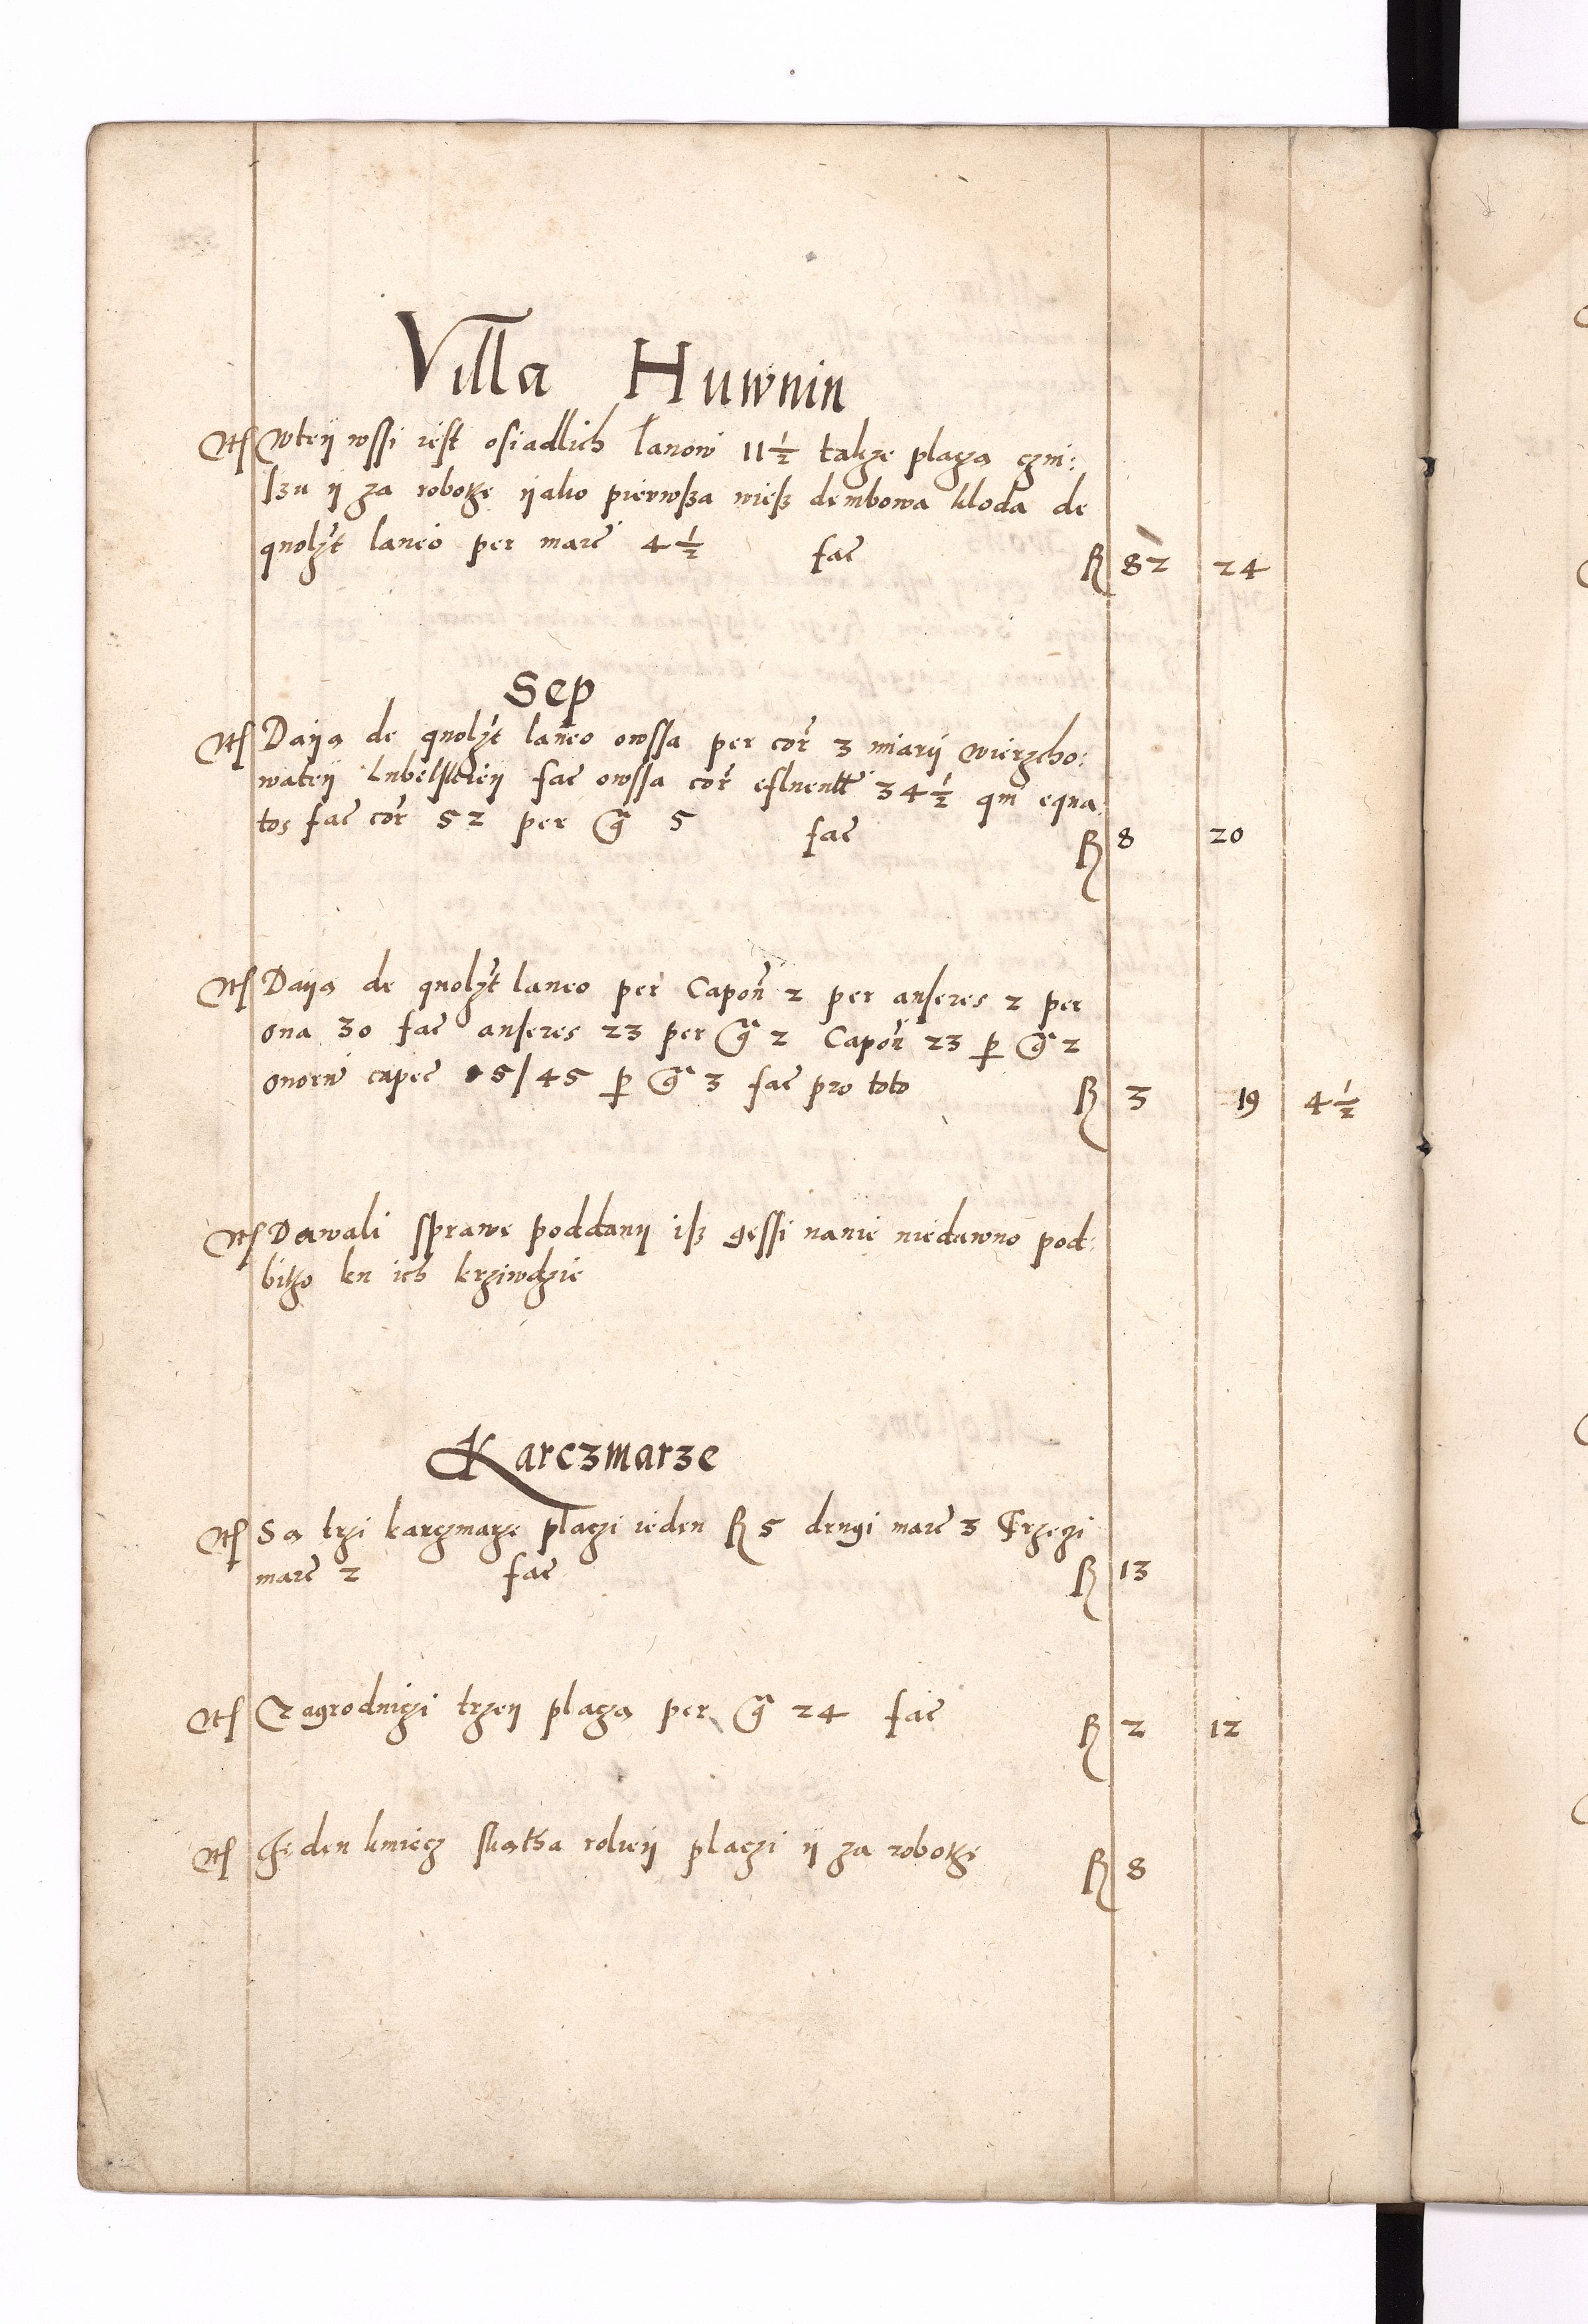 Villa Huwnin
Itē Wteÿ wssi iest osiadlich łanow 11½ takze placza czin:
szu ÿ za robotze ÿako pierwsza wiesz dembowa kloda de
quolꝫt laneo per marc̄ 4½ fac̄ R 82 24
Sep
Itē Daÿa de quolꝫt laneo owssa per cor̄ 3 miarÿ wierzcho:
wateÿ Lubelskieÿ fac̄ owssa cor̄ 34½ qm̄ equa
tos fac̄ cor̄ 52 per g̃ 5 fac̄ R 8 20
Itē Daÿa de quolꝫt laneo per Capoñ 2 per anseres 2 per
oua 30 fac̄ anseres 23 per g̃ 2 Capoñ 23 ꝑ g̃ 2
ouorū capec̄ 5/45 ꝑ g̃ 3 fac̄ pro toto R 3 19 4½
Itē Dawali sprawe poddanÿ isz gessi nanie niedawno pod:
bitho ku ich krziwdzie
Karczmarze
Itē Sa trzi karczmarze placzi ieden R 5 drugi marc̄ 3 Trzeczi
marc̄ 2 fac̄ R 13
Itē Zagrodniczi trzeÿ placza per g̃ 24 fac̄ R 2 12
Itē Jeden kmiecz rolieÿ placzi ÿ za robotze R 8